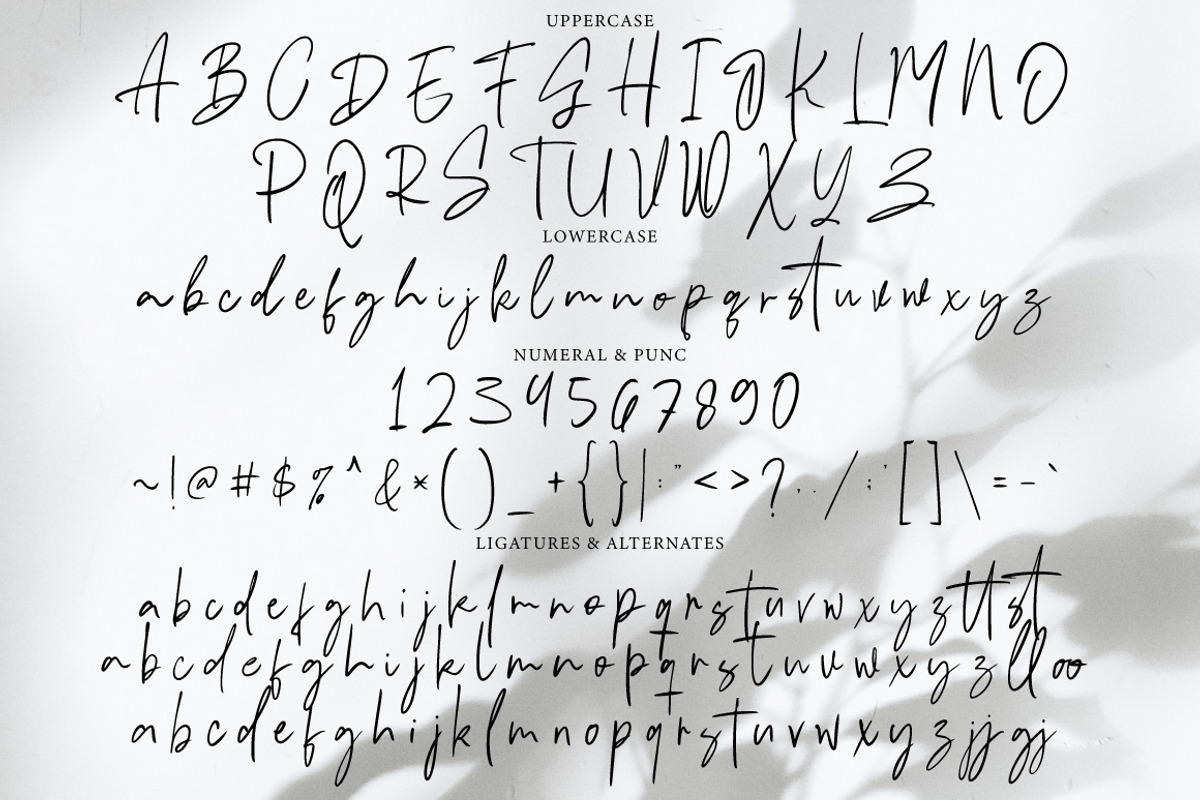 UPPERCASE
A B C D E F G H I J K L M N O
P Q R S T U V W X Y Z
LOWERCASE
a b c d e f g h i j k l m n o p q r s t u v w x y z
NUMERAL & PUNC
1 2 3 4 5 6 7 8 9 0
~ ! @ # $ % ^ & * ( ) _ + { } | : " < > ? , . / ; ' [ ] \ = - `
LIGATURES & ALTERNATES
a b c d e f g h i j k l m n o p q r s t u v w x y z tt st
a b c d e f g h i j k l m n o p q r s t u v w x y z ll oo
a b c d e f g h i j k l m n o p q r s t u v w x y z jj gj